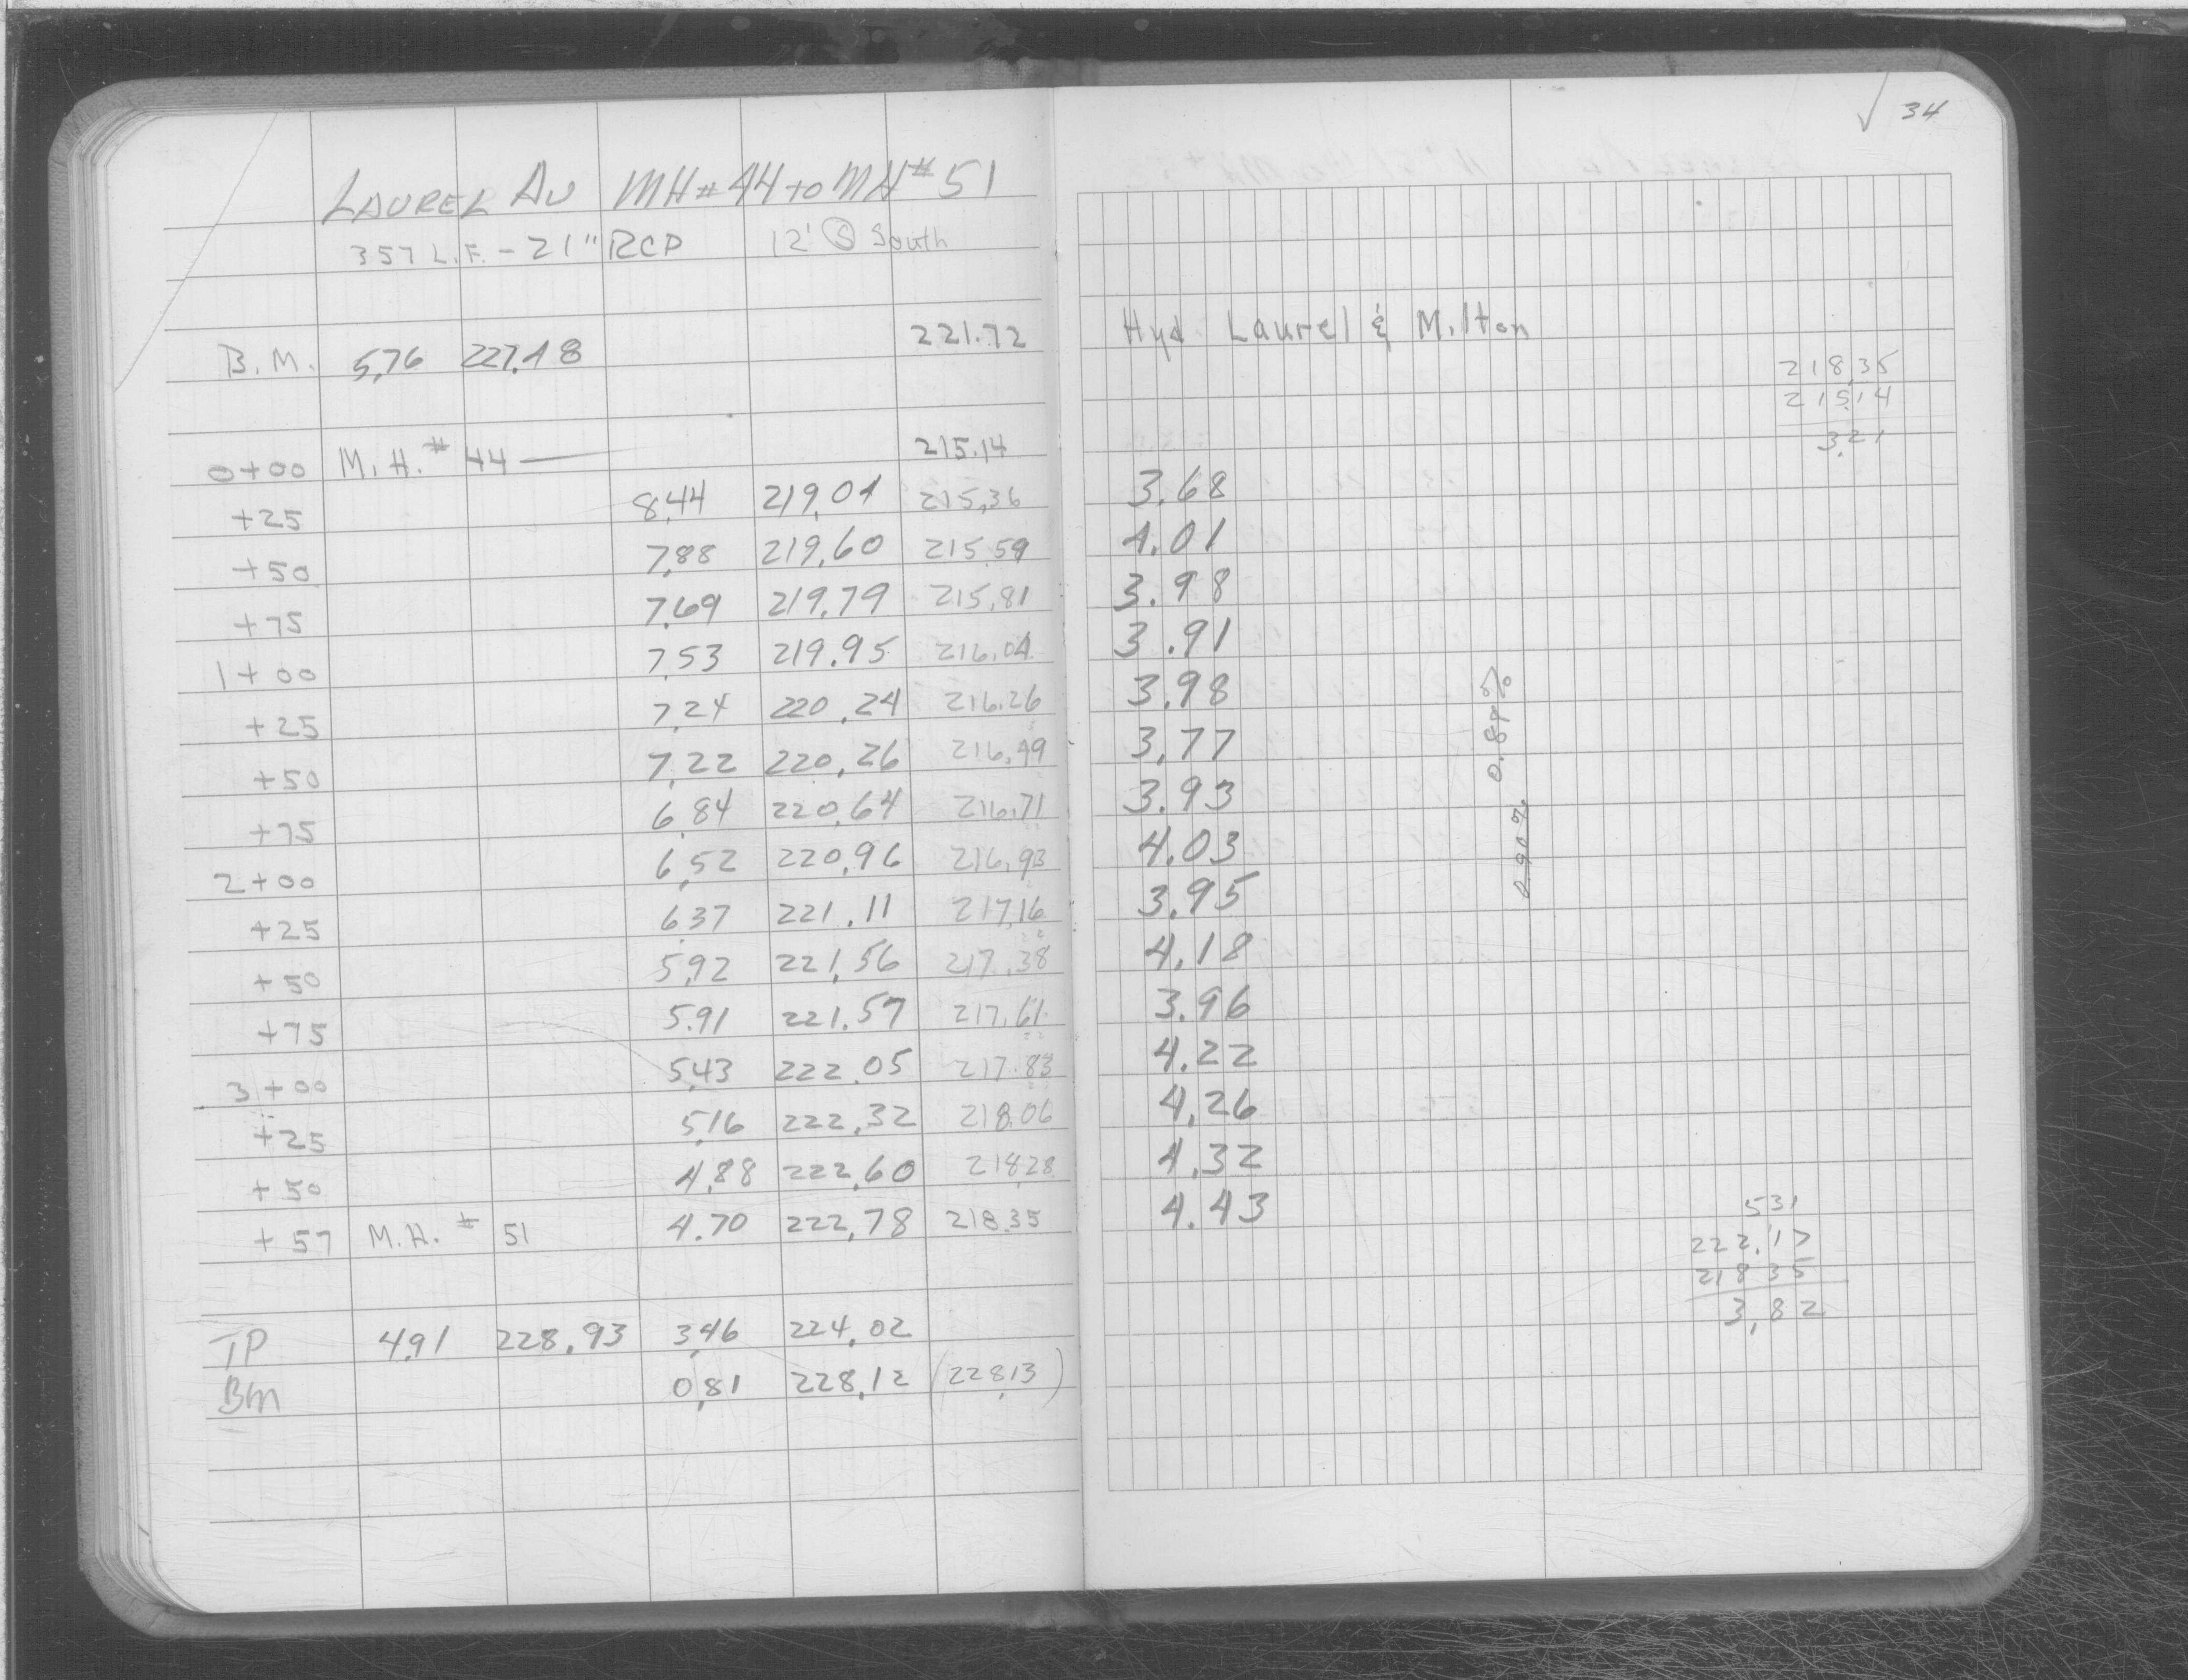 34
LAUREL AV MH#44 to MH#51
357 L.F. - 21" RCP 12' Ⓢ South
B.M. 5.76 227.48 221.72 Hyd Laurel & Milton
218.35
215.14
3.21
0+00 M.H.# 44 — 215.14
+25 8.44 219.04 215.36 3.68
+50 7.88 219.60 215.59 4.01
+75 7.69 219.79 215.81 3.98
1+00 7.53 219.95 216.04 3.91
+25 7.24 220.24 216.26 3.98
+50 7.22 220.26 216.49 3.77
+75 6.84 220.64 216.71 3.93
2+00 6.52 220.96 216.93 4.03
+25 6.37 221.11 217.16 3.95
+50 5.92 221.56 217.38 4.18
+75 5.91 221.57 217.61 3.96
3+00 5.43 222.05 217.83 4.22
+25 5.16 222.32 218.06 4.26
+50 4.88 222.60 218.28 4.32
+57 M.H. # 51 4.70 222.78 218.35 4.43
0.90%
531
222.17
218 35
3.82
TP 4.91 228.93 3.46 224.02
BM 0.81 228.12 (228.13)